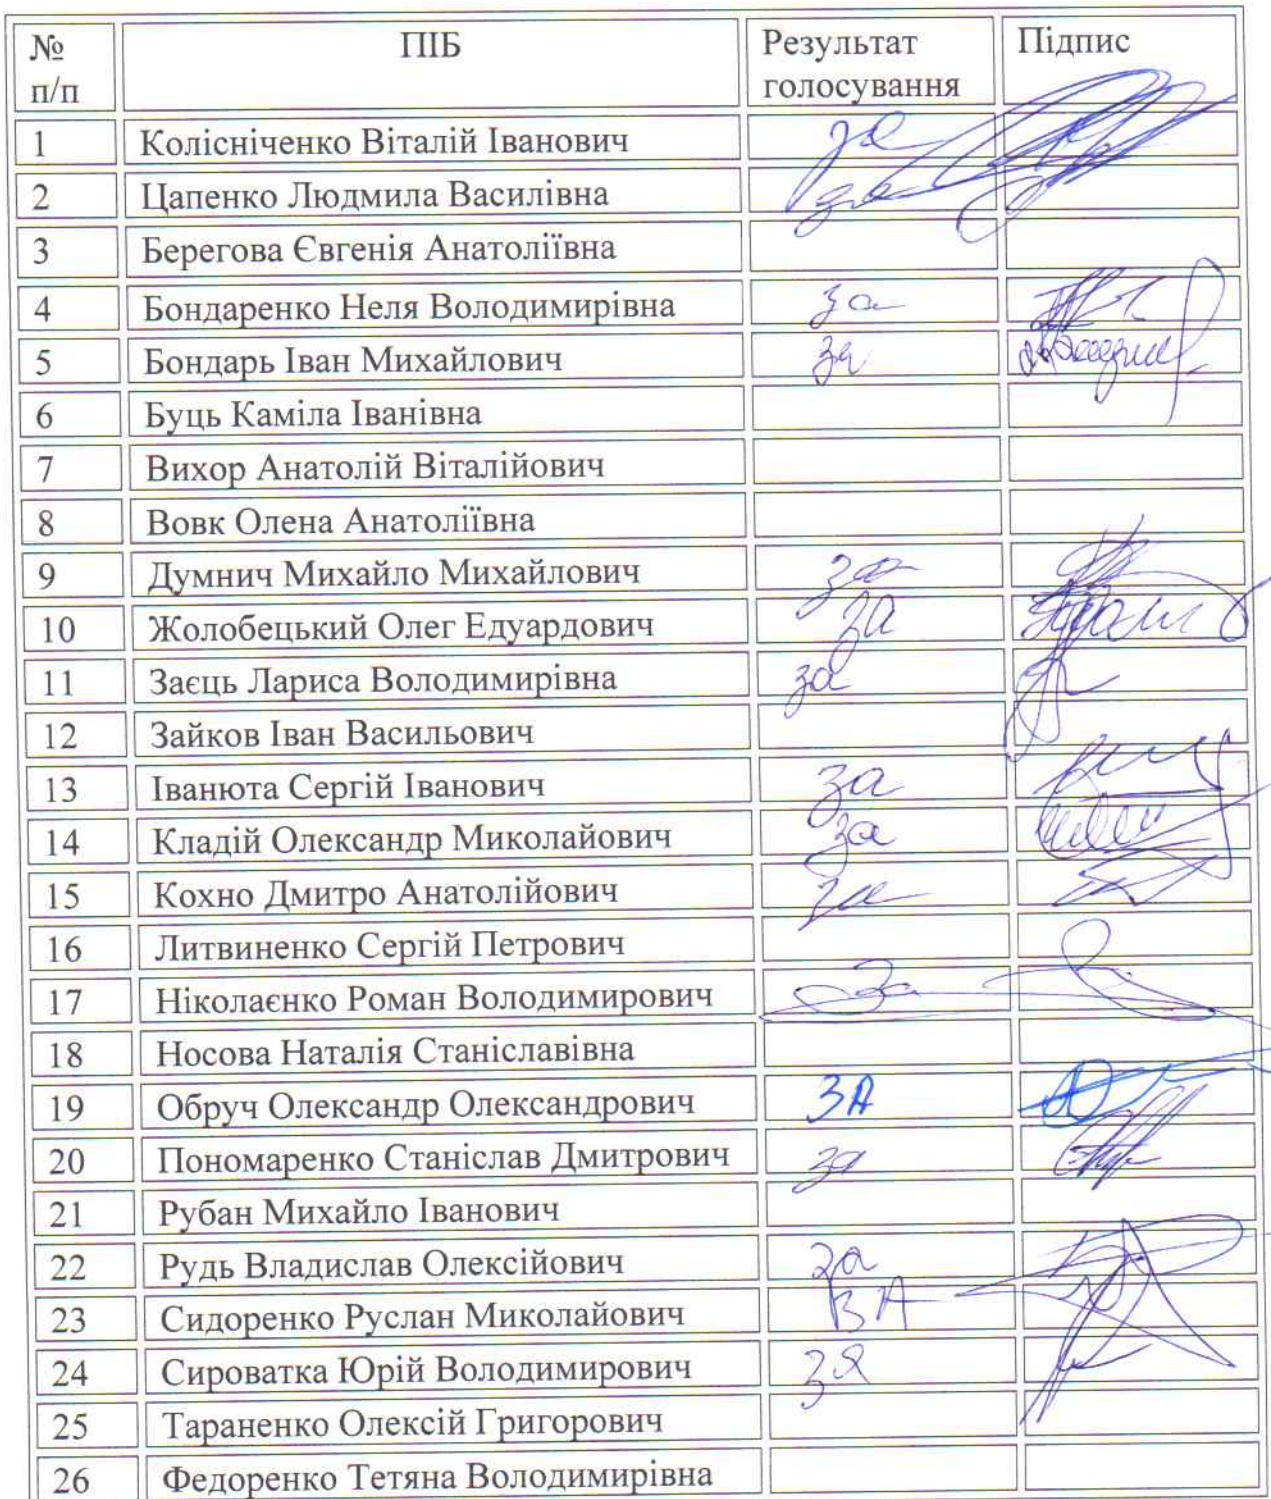 № п/п ПІБ Результат голосування Підпис
1 Колісніченко Віталій Іванович за
2 Цапенко Людмила Василівна за
3 Берегова Євгенія Анатоліївна
4 Бондаренко Неля Володимирівна за
5 Бондарь Іван Михайлович за
6 Буць Каміла Іванівна
7 Вихор Анатолій Віталійович
8 Вовк Олена Анатоліївна
9 Думнич Михайло Михайлович за
10 Жолобецький Олег Едуардович за
11 Заєць Лариса Володимирівна за
12 Зайков Іван Васильович
13 Іванюта Сергій Іванович за
14 Кладій Олександр Миколайович за
15 Кохно Дмитро Анатолійович за
16 Литвиненко Сергій Петрович
17 Ніколаєнко Роман Володимирович За
18 Носова Наталія Станіславівна
19 Обруч Олександр Олександрович ЗА
20 Пономаренко Станіслав Дмитрович за
21 Рубан Михайло Іванович
22 Рудь Владислав Олексійович за
23 Сидоренко Руслан Миколайович ЗА
24 Сироватка Юрій Володимирович за
25 Тараненко Олексій Григорович
26 Федоренко Тетяна Володимирівна